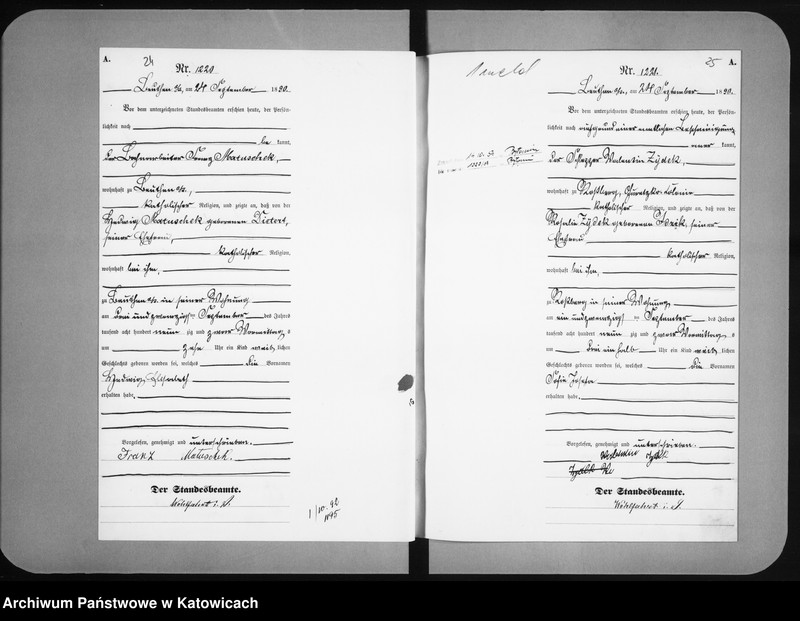 A.
24
Nr. 1220
Beuthen O/S., am 24 September 1890.
Vor dem unterzeichneten Standesbeamten erschien heute, der Persön-
lichkeit nach
be kannt,
der Bahnarbeiter Franz Matuschek,
wohnhaft zu Beuthen O/S.,
katholischer Religion, und zeigte an, daß von der
Hedwig Matuschek geborenen
seiner Ehefrau,
katholischer Religion,
wohnhaft bei ihm,
zu Beuthen O/S. in seiner Wohnung
am drei und zwanzigsten September des Jahres
tausend acht hundert neunzig und zwar Vormittags
um zehn Uhr ein Kind weiblichen
Geschlechts geboren worden sei, welches die Vornamen
Hedwig Elisabeth
erhalten habe.
Vorgelesen, genehmigt und unterschrieben.
Franz Matuschek.
Der Standesbeamte.
Wohlfahrt i. V.
25
A.
Nr. 1221.
Beuthen O/S., am 24 September 1890.
Vor dem unterzeichneten Standesbeamten erschien heute, der Persön-
lichkeit nach auf Grund einer amtlichen Bescheinigung
kannt,
der Schlepper Valentin Zydek,
wohnhaft zu Roßberg, Colonie
katholischer Religion, und zeigte an, daß von der
Rosalie Zydek geborenen seiner
Ehefrau
katholischer Religion,
wohnhaft bei ihm,
zu Roßberg in seiner Wohnung
am ein und zwanzigsten September des Jahres
tausend acht hundert neunzig und zwar Vormittags
um drei ein halb Uhr ein Kind weiblichen
Geschlechts geboren worden sei, welches die Vornamen
Sofie
erhalten habe.
Vorgelesen, genehmigt und unterschrieben.
Der Standesbeamte.
Wohlfahrt i. V.
Archiwum Państwowe w Katowicach